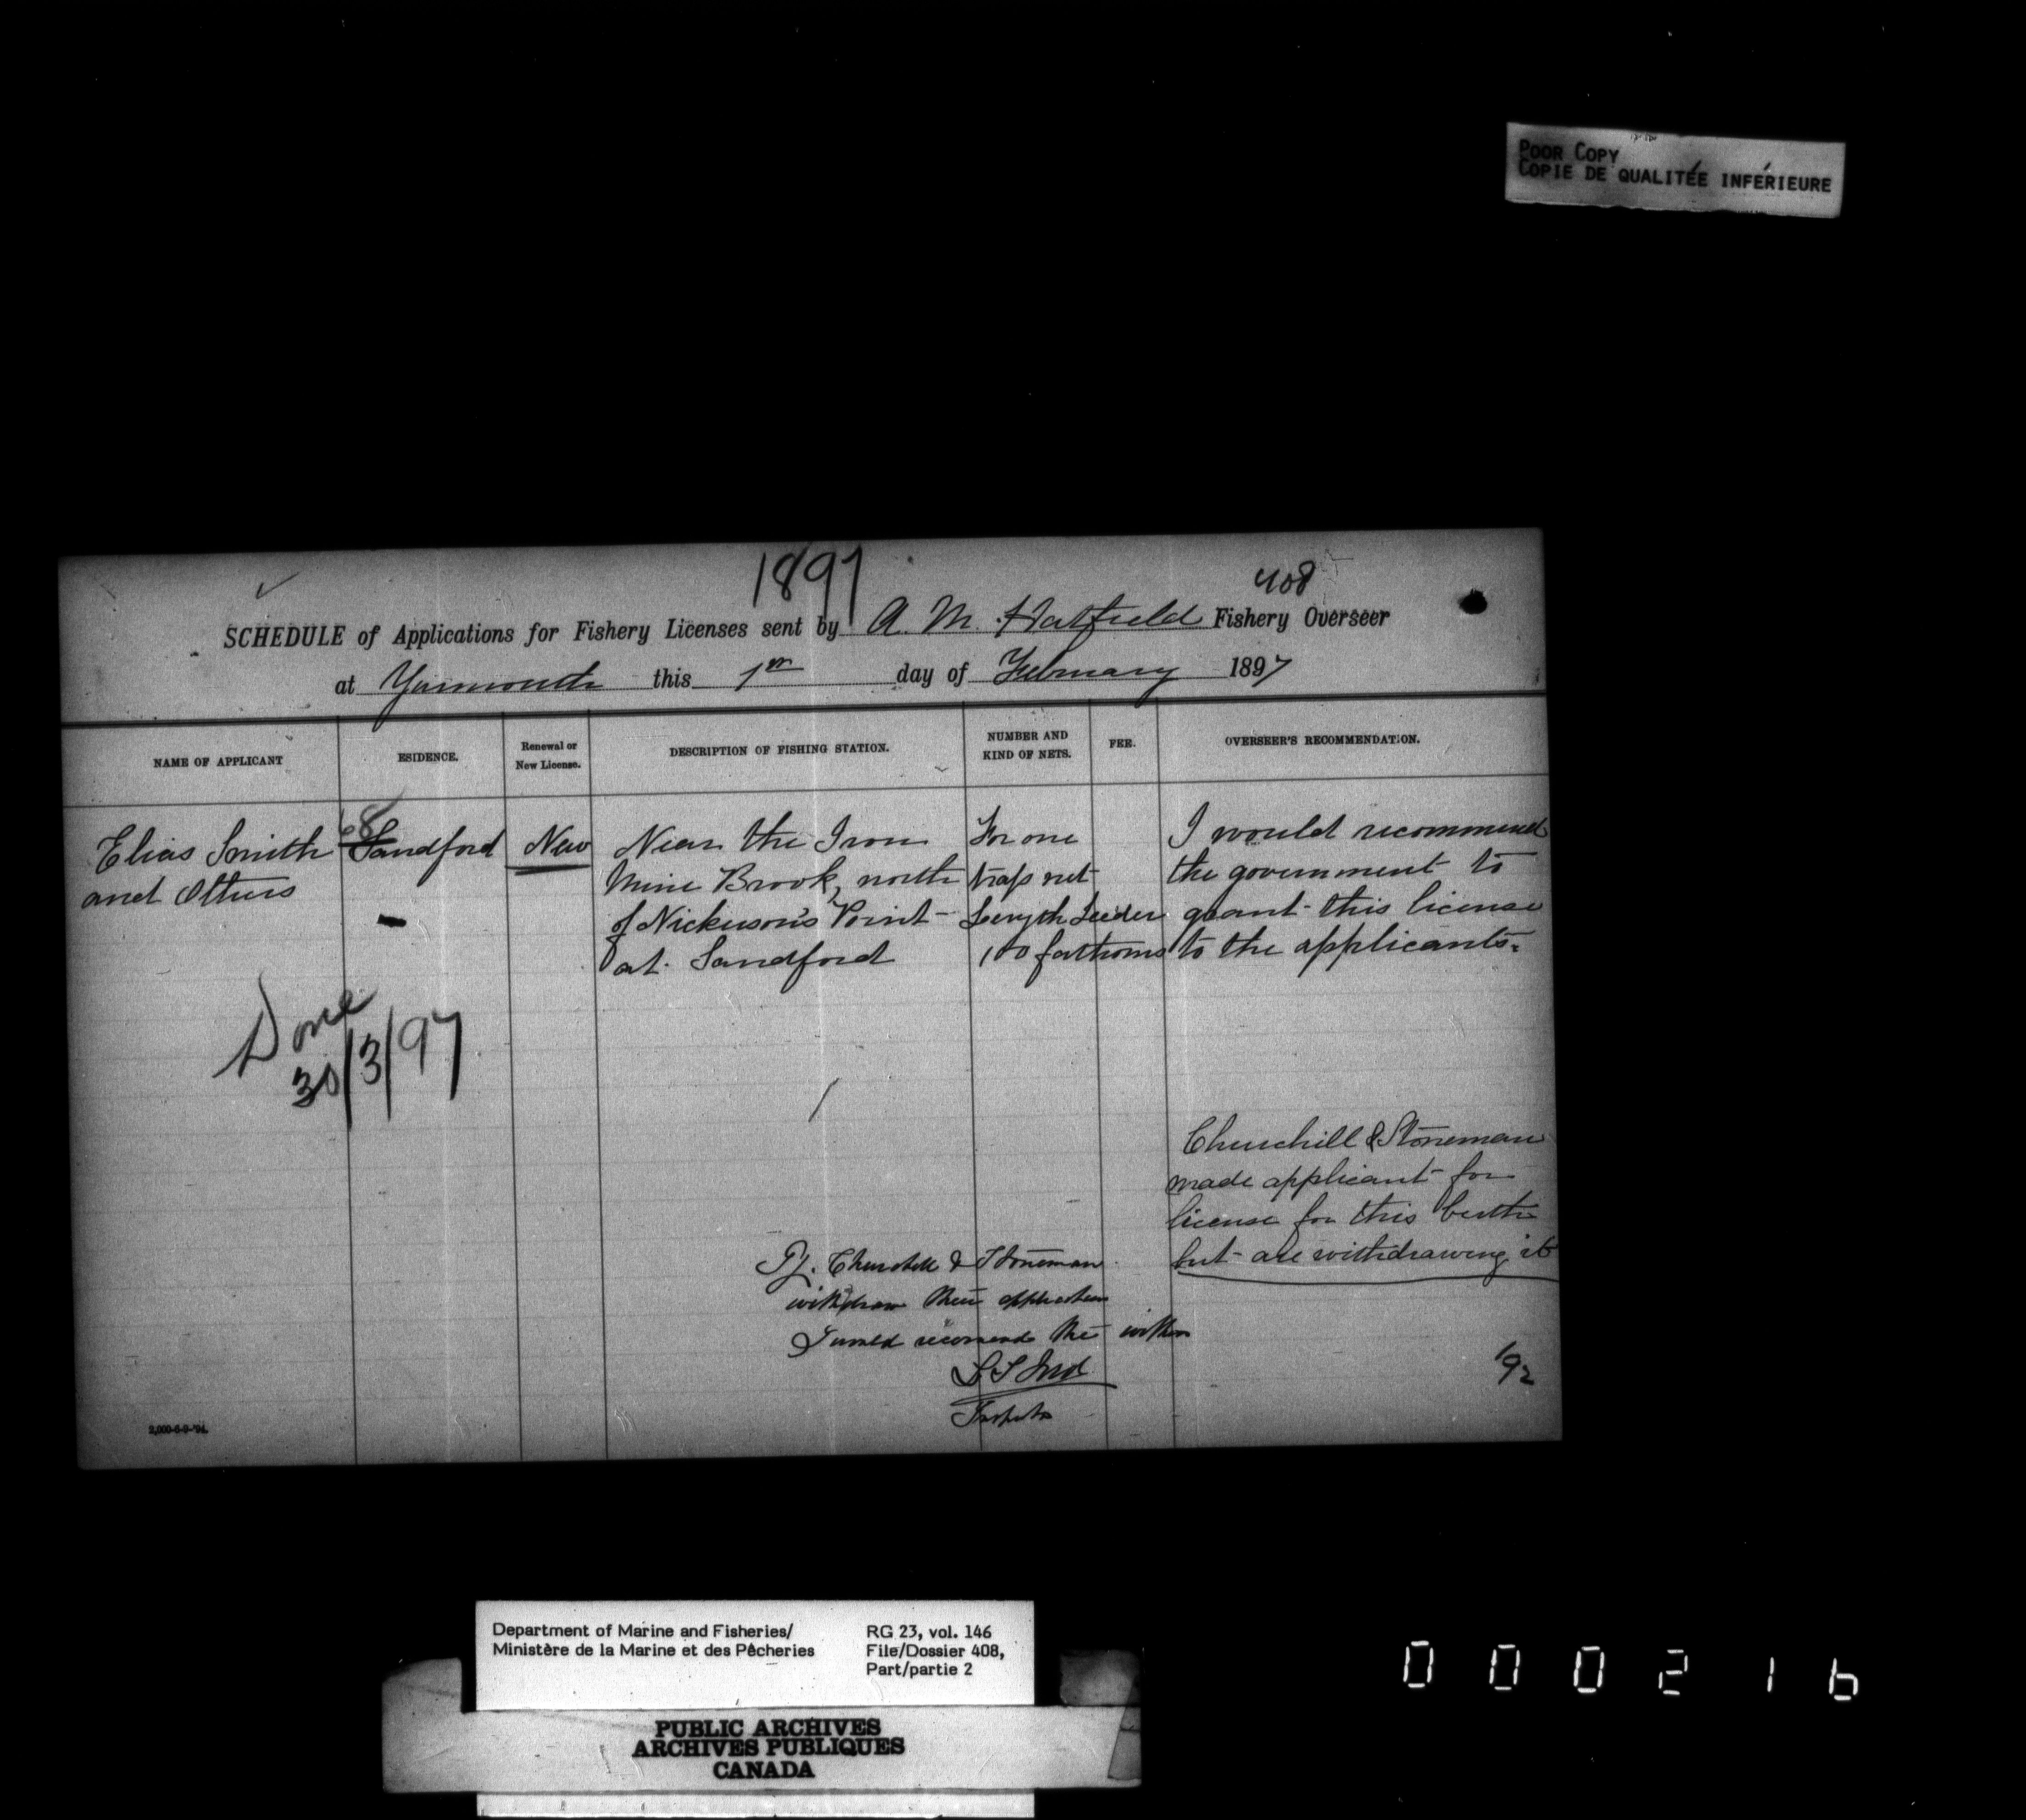 POOR COPY
COPIE DE QUALITÉE INFÉRIEURE
1897
408
SCHEDULE of Applications for Fishery Licenses sent by A. M. Hatfield Fishery Overseer
at Yarmouth this 1st day of February 1897
NAME OF APPLICANT ESIDENCE. Renewal or New License. DESCRIPTION OF FISHING STATION. NUMBER AND KIND OF NETS. FEE. OVERSEER'S RECOMMENDATION.
68
Elias Smith Sandford New Near the Iron For one I would recommend
and Others Mine Brook, north trap net the government to
of Nickerson's Point Length Leeder grant this license
at Sandford 100 fathoms to the applicants.
Done
30/3/97
Churchill & Stoneman
made applicant for
license for this berth
but are withdrawing it
If Churchill & Stoneman
withdraw their application
I would recommend the within
192
2,000-6-9-'94.
Department of Marine and Fisheries/
Ministère de la Marine et des Pêcheries
RG 23, vol. 146
File/Dossier 408,
Part/partie 2
PUBLIC ARCHIVES
ARCHIVES PUBLIQUES
CANADA
000216